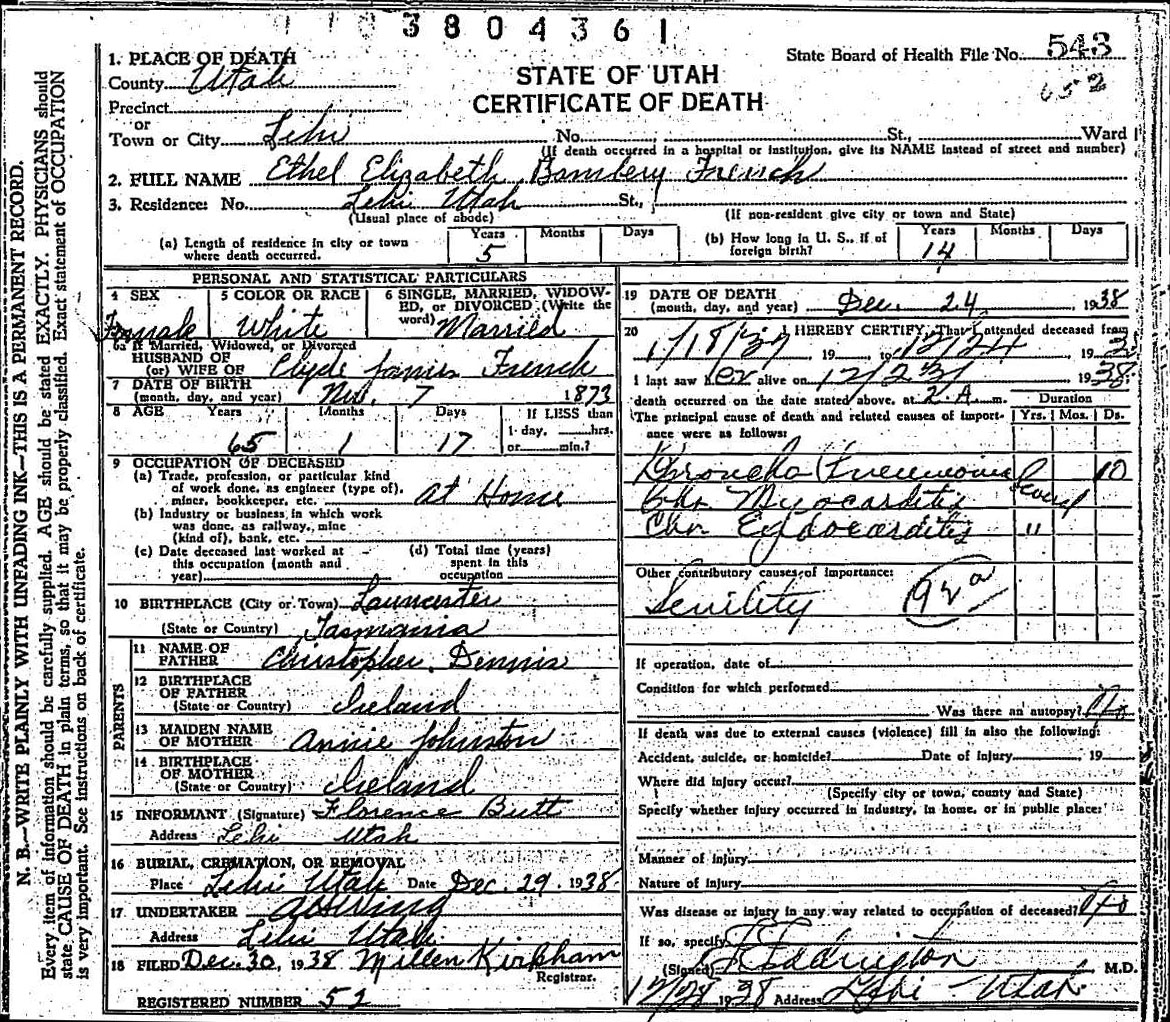 3804361
State Board of Health File No. 543
652
1. PLACE OF DEATH
STATE OF UTAH
CERTIFICATE OF DEATH
County Utah
Precinct
or
Town or City Lehi No. St., Ward
(If death occurred in a hospital or institution, give its NAME instead of street and number)
2. FULL NAME Ethel Elizabeth Bambery French
3. Residence: No. Lehi Utah St.,
(Usual place of abode) (If non-resident give city or town and State)
(a) Length of residence in city or town where death occurred. Years 5 Months Days
(b) How long in U. S., if of foreign birth? Years 14 Months Days
PERSONAL AND STATISTICAL PARTICULARS
4 SEX Female
5 COLOR OR RACE White
6 SINGLE, MARRIED, WIDOWED, or DIVORCED (Write the word) Married
6a If Married, Widowed, or Divorced
HUSBAND OF
(or) WIFE OF Clyde James French
7 DATE OF BIRTH (month, day, and year) Nov. 7 1873
8 AGE Years 65 Months 1 Days 17 If LESS than 1 day, hrs. or min.?
9 OCCUPATION OF DECEASED
(a) Trade, profession, or particular kind of work done, as engineer (type of), miner, bookkeeper, etc. At Home
(b) Industry or business in which work was done, as railway, mine (kind of), bank, etc.
(c) Date deceased last worked at this occupation (month and year)
(d) Total time (years) spent in this occupation
10 BIRTHPLACE (City or Town) Launcester
(State or Country) Tasmania
PARENTS
11 NAME OF FATHER Christopher Dennis
12 BIRTHPLACE OF FATHER (State or Country) Ireland
13 MAIDEN NAME OF MOTHER Annie Johnston
14 BIRTHPLACE OF MOTHER (State or Country) Ireland
15 INFORMANT (Signature) Florence Butt
Address Lehi Utah
16 BURIAL, CREMATION, OR REMOVAL
Place Lehi Utah Date Dec. 29. 1938
17 UNDERTAKER
Address Lehi Utah
18 FILED Dec. 30, 1938 Millen Kirkham
Registrar.
REGISTERED NUMBER 52
19 DATE OF DEATH (month, day, and year) Dec. 24 1938
20 I HEREBY CERTIFY, That I attended deceased from
1/18/37 19 to 12/24 193
I last saw her alive on 12/23/ 1938
death occurred on the date stated above, at 2 A m.
Duration
The principal cause of death and related causes of importance were as follows: Yrs. Mos. Ds.
Broncho Pneumonia 10
Chr Myocarditis Several
Chr Endocarditis "
Other contributory causes of importance:
Senility 92a
If operation, date of
Condition for which performed
Was there an autopsy? No
If death was due to external causes (violence) fill in also the following:
Accident, suicide, or homicide? Date of injury 19
Where did injury occur?
(Specify city or town, county and State)
Specify whether injury occurred in industry, in home, or in public place:
Manner of injury
Nature of injury
Was disease or injury in any way related to occupation of deceased? No
If so, specify
(Signed) Eddington M.D.
12/28 1938 Address Lehi Utah
N. B.—WRITE PLAINLY WITH UNFADING INK—THIS IS A PERMANENT RECORD.
Every item of information should be carefully supplied. AGE should be stated EXACTLY. PHYSICIANS should
state CAUSE OF DEATH in plain terms, so that it may be properly classified. Exact statement of OCCUPATION
is very important. See instructions on back of certificate.